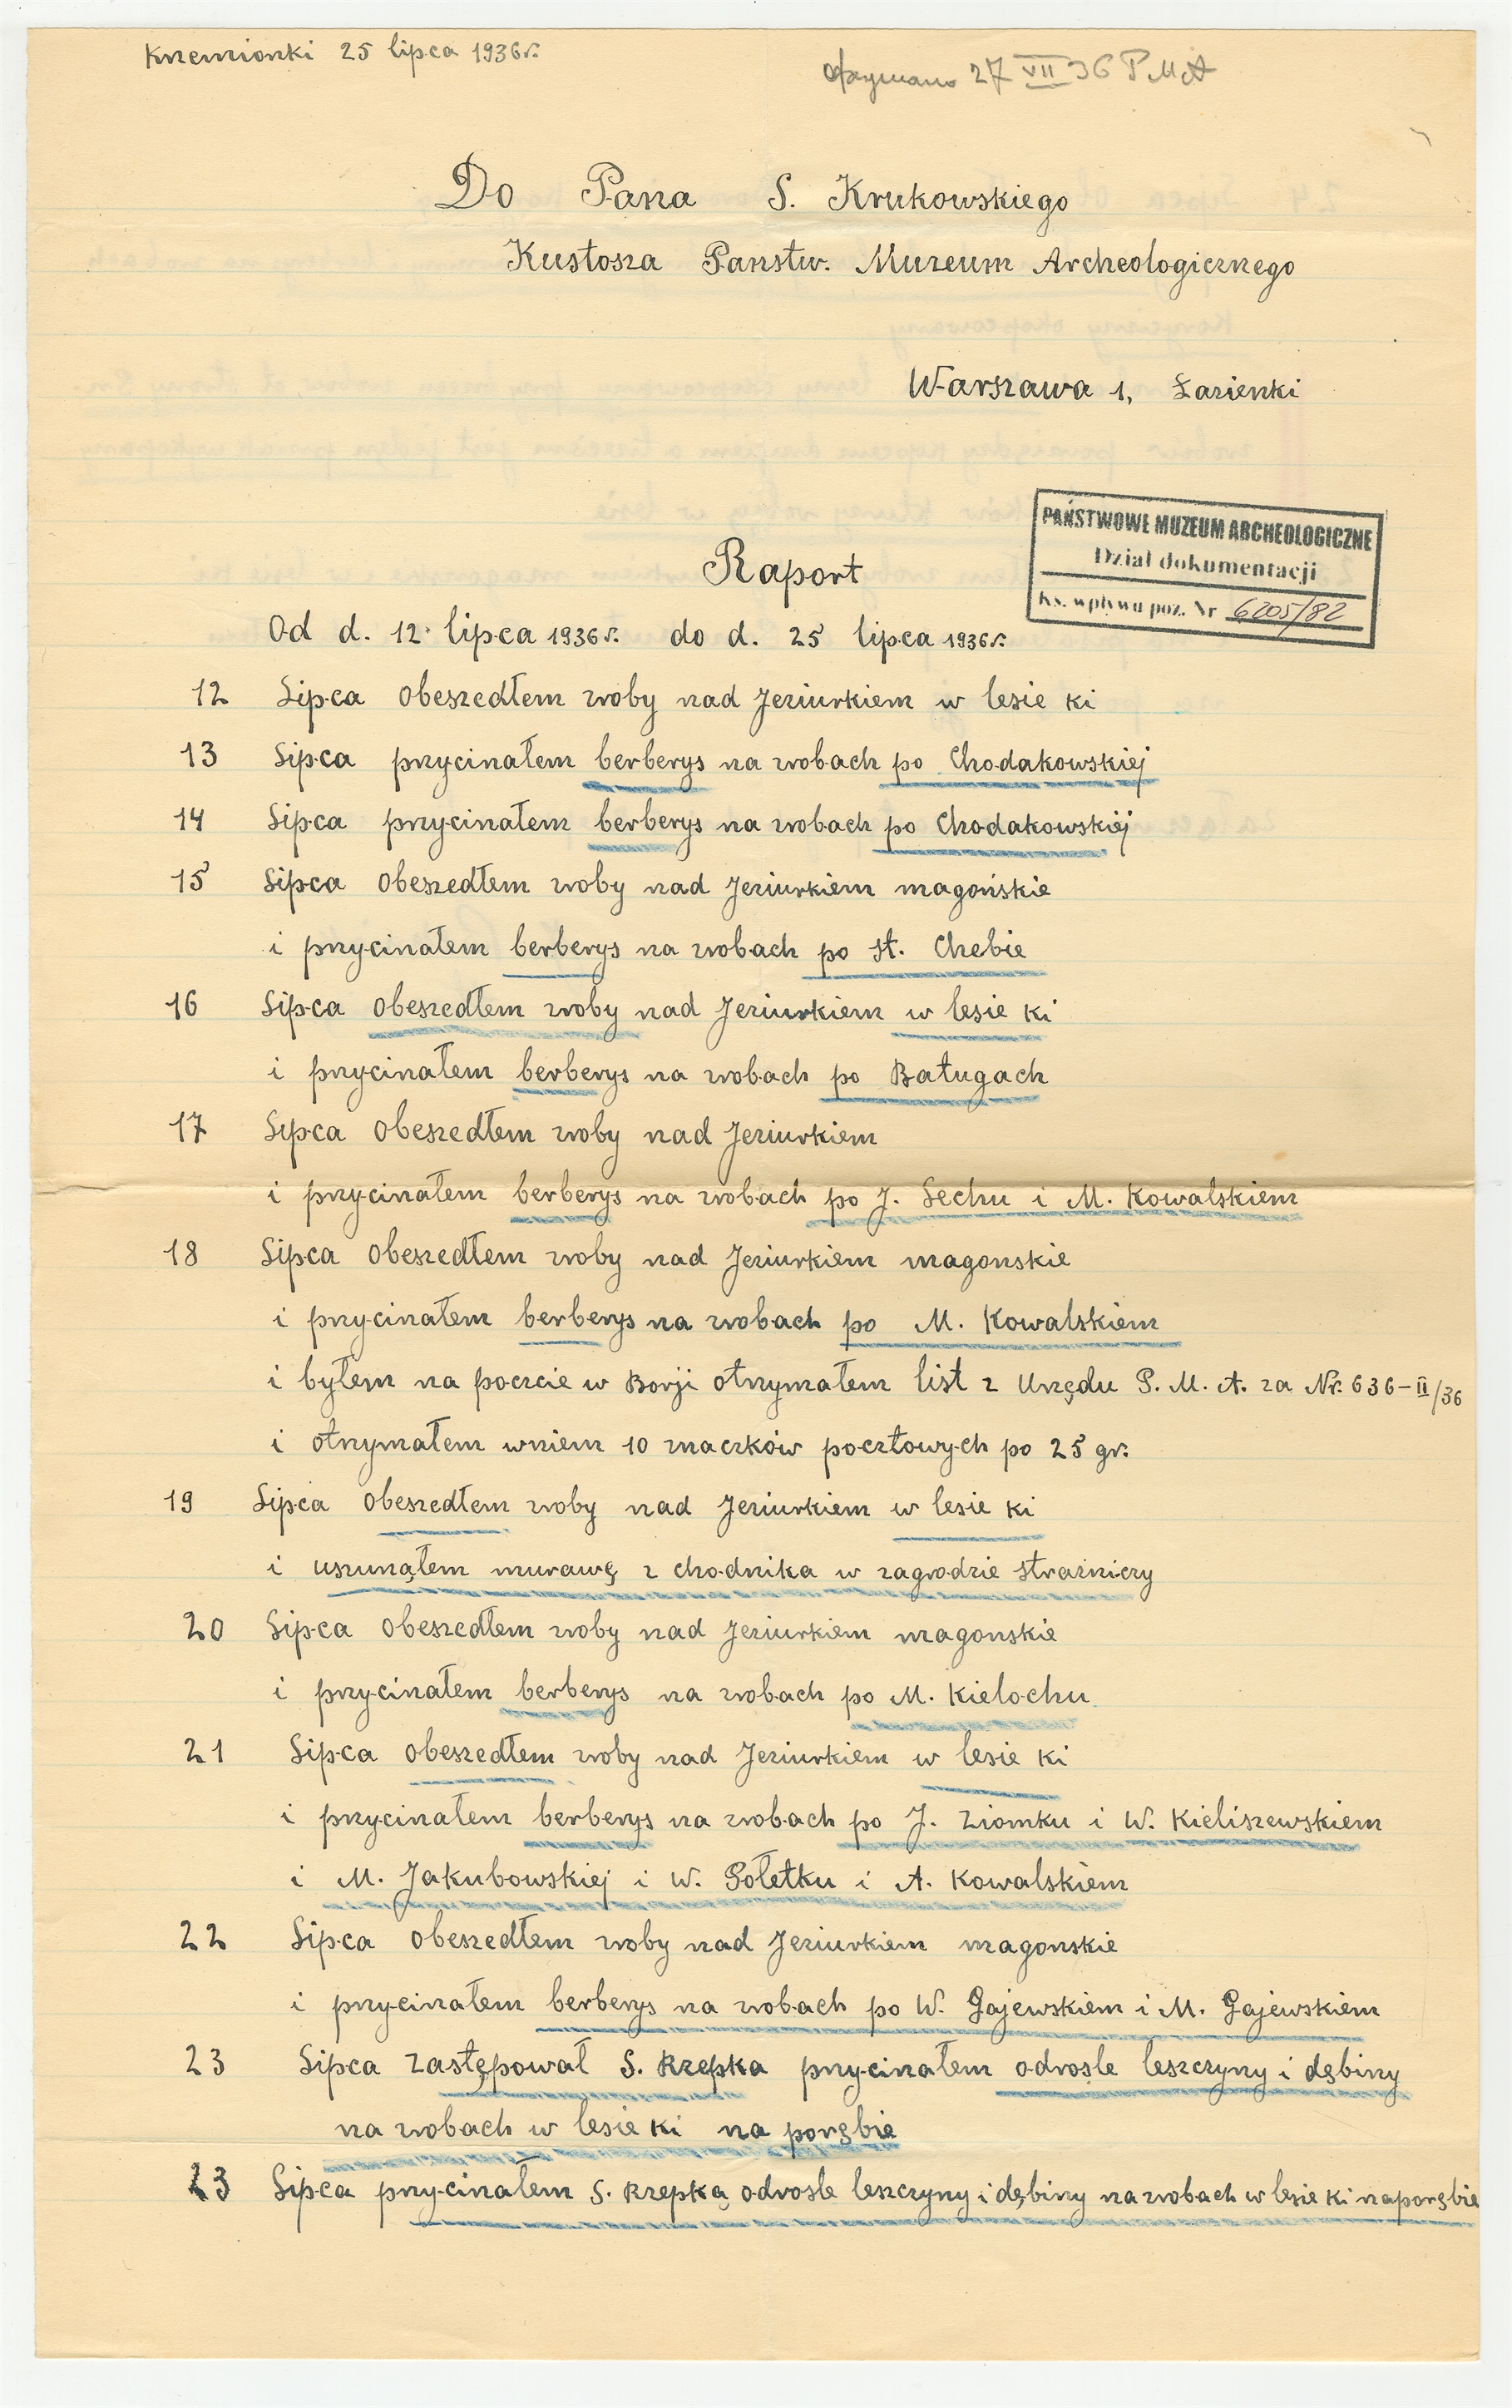 Krzemionki 25 lipca 1936r.
Otrzymano 27 VII 36 PMA
Do Pana S. Krukowskiego
Kustosza Panstw. Muzeum Archeologicznego
Warszawa 1, Łazienki
PAŃSTWOWE MUZEUM ARCHEOLOGICZNE
Dział dokumentacji
Ks. wpływu poz. Nr 6205/82
Raport
Od d. 12 lipca 1936r. do d. 25 lipca 1936r.
12 Lipca obeszedłem zroby nad Jeziurkiem w lesie ki
13 Lipca przycinałem berberys na zrobach po Chodakowskiej
14 Lipca przycinałem berberys na zrobach po Chodakowskiej
15 Lipca obeszedłem zroby nad Jeziurkiem magońskie
i przycinałem berberys na zrobach po st. Chebie
16 Lipca obeszedłem zroby nad Jeziurkiem w lesie ki
i przycinałem berberys na zrobach po Baługach
17 Lipca obeszedłem zroby nad Jeziurkiem
i przycinałem berberys na zrobach po J. Lechu i M. Kowalskiem
18 Lipca obeszedłem zroby nad Jeziurkiem magonskie
i przycinałem berberys na zrobach po M. Kowalskiem
i byłem na poczcie w Borji otrzymałem list z Urzędu P. M. A. za Nr. 636-II/36
i otrzymałem wniem 10 znaczków pocztowych po 25 gr.
19 Lipca obeszedłem zroby nad Jeziurkiem w lesie ki
i uszunąłem murawę z chodnika w zagrodzie strażniczy
20 Lipca obeszedłem zroby nad Jeziurkiem magonskie
i przycinałem berberys na zrobach po M. Kielochu
21 Lipca obeszedłem zroby nad Jeziurkiem w lesie ki
i przycinałem berberys na zrobach po J. Ziomku i W. Kieliszewskiem
i M. Jakubowskiej i W. Gołetku i A. Kowalskiem
22 Lipca obeszedłem zroby nad Jeziurkiem magonskie
i przycinałem berberys na zrobach po W. Gajewskiem i M. Gajewskiem
23 Lipca zastępował S. Rzepka przycinałem odrosle leszczyny i dębiny
na zrobach w lesie ki na porębie
23 Lipca przycinałem S. Rzepką odrosle leszczyny i dębiny na zrobach w lesie ki naporębie